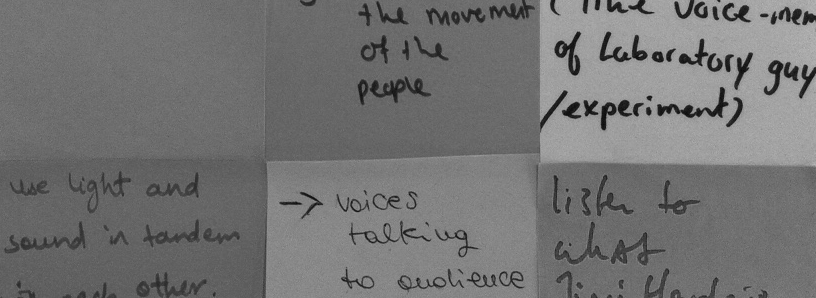 the movement
of the
people
(like voice-mem
of Laboratory guy
/experiment)
use light and
sound in tandem
other.
→ voices
talking
to audience
listen to
what